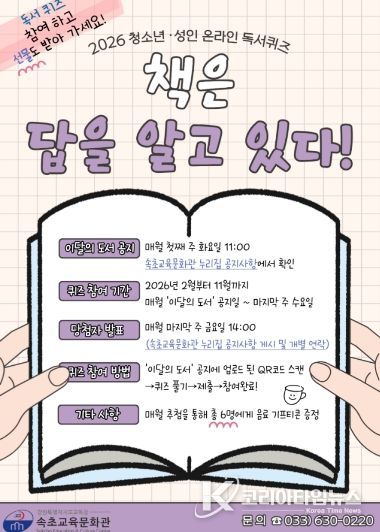 독서 퀴즈
참여 하고
선물도 받아 가세요!
2026 청소년·성인 온라인 독서퀴즈
책은
답을 알고 있다!
이달의 도서 공지 매월 첫째 주 화요일 11:00
속초교육문화관 누리집 공지사항에서 확인
퀴즈 참여 기간 2026년 2월부터 11월까지
매월 '이달의 도서' 공지일 ~ 마지막 주 수요일
당첨자 발표 매월 마지막 주 금요일 14:00
(속초교육문화관 누리집 공지사항 게시 및 개별 연락)
퀴즈 참여 방법 '이달의 도서' 공지에 업로드 된 QR코드 스캔
→퀴즈 풀기→제출→참여완료!
기타 사항 매월 추첨을 통해 총 6명에게 음료 기프티콘 증정
강원특별자치도교육청
속초교육문화관
K 코리아타임뉴스
Korea Time News
문의 ☎ 033) 630-0220